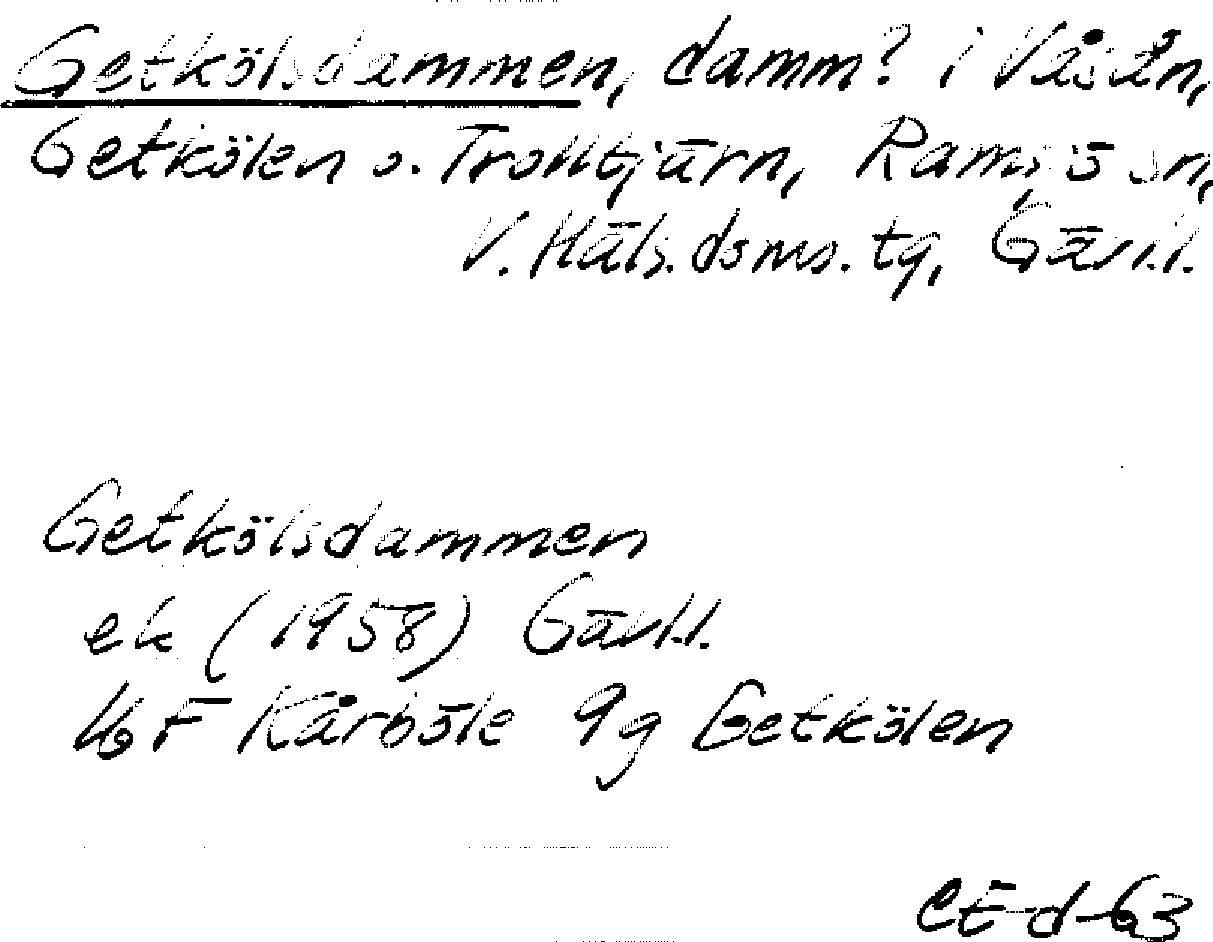 Getkölsdammen, damm? i Våsån,
Getkölen o. Trolltjärn, Ramsjö sn,
V. Häls. dsms. tg, Gävl.l.
Getkölsdammen
ek (1958) Gävl.l.
16F Kårböle 9g Getkölen